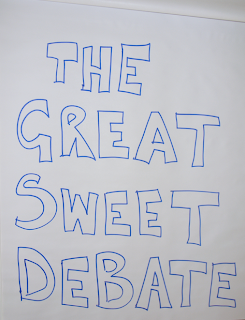 THE
GREAT
SWEET
DEBATE